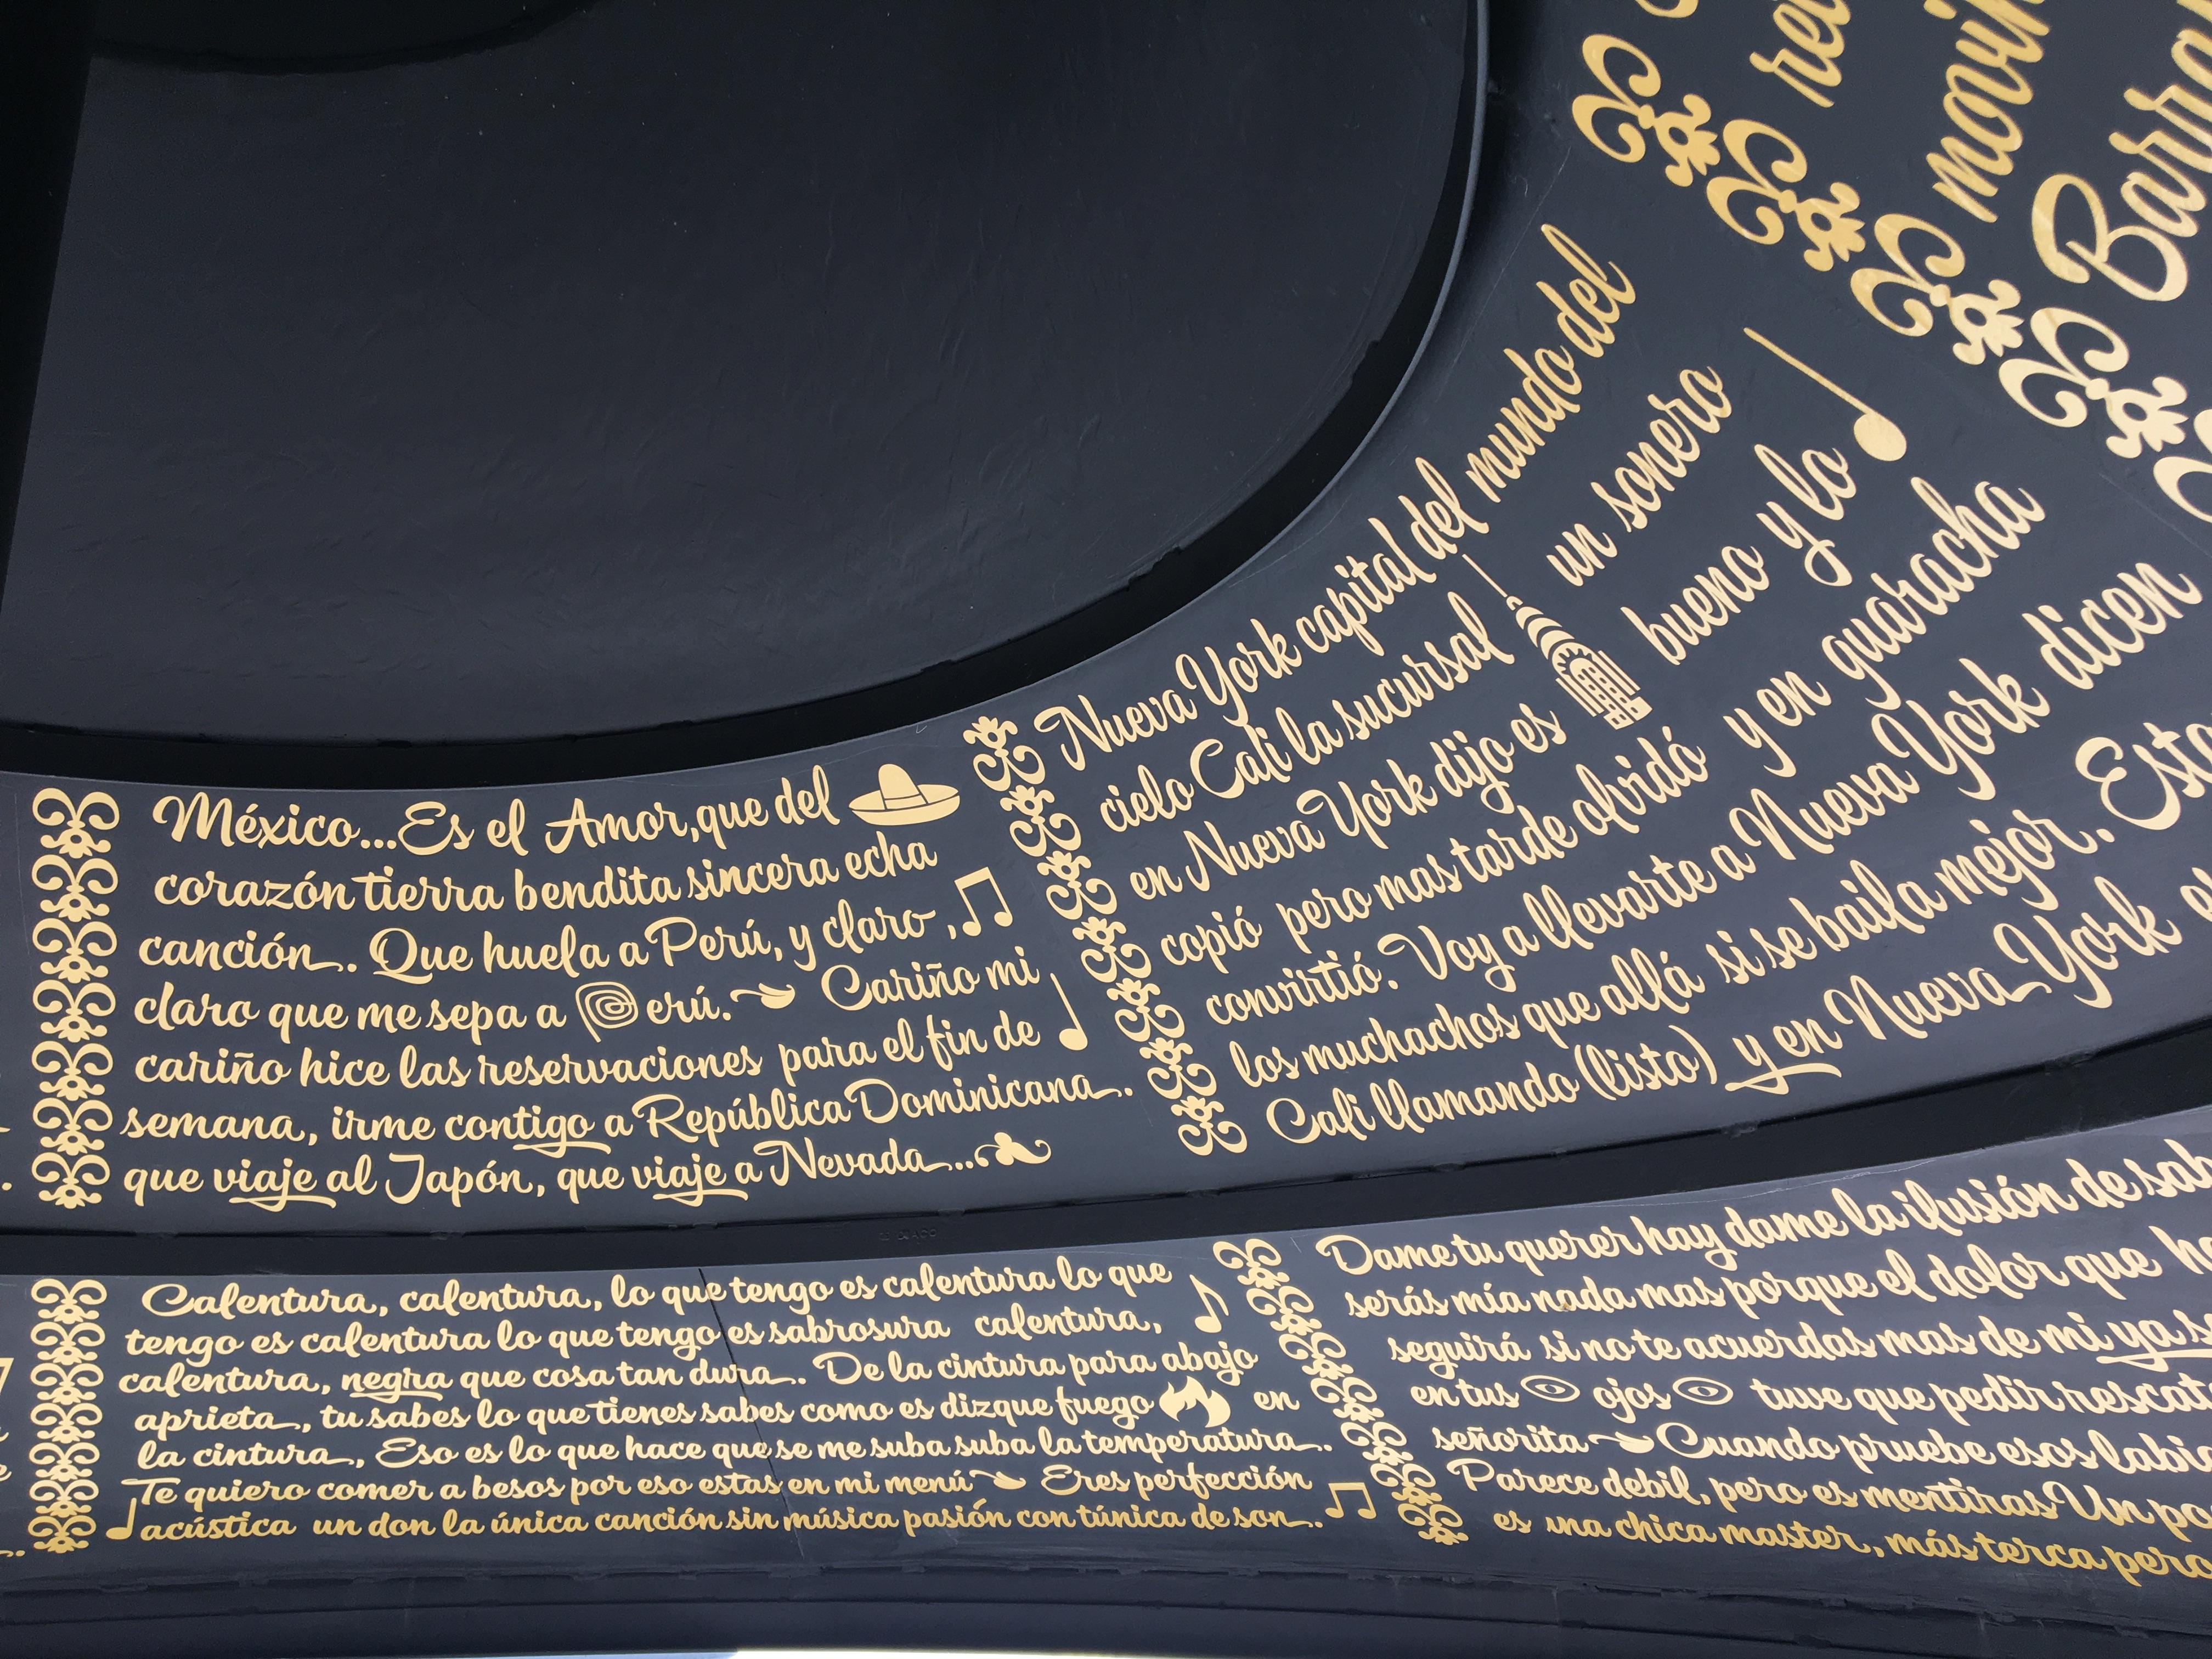 México...Es el Amor, que del
corazón tierra bendita sincera echa
canción. Que huela a Perú, y claro,
claro que me sepa a Perú. Cariño mi
cariño hice las reservaciones para el fin de
semana, irme contigo a República Dominicana.
que viaje al Japón, que viaje a Nevada...
Nueva York capital del mundo del
cielo Cali la sucursal un sonero
en Nueva York dijo es bueno y lo
copió pero mas tarde olvidó y en guaracha
convirtió. Voy a llevarte a Nueva York dicen
los muchachos que allá si se baila mejor. Esta
Cali llamando (listo) y en Nueva York
movin
Calentura, calentura, lo que tengo es calentura lo que
tengo es calentura lo que tengo es sabrosura calentura,
calentura, negra que cosa tan dura. De la cintura para abajo
aprieta, tu sabes lo que tienes sabes como es dizque fuego en
la cintura, Eso es lo que hace que se me suba suba la temperatura.
Te quiero comer a besos por eso estas en mi menú Eres perfección
acústica un don la única canción sin música pasión con túnica de son.
Dame tu querer hay dame la ilusión de sab
serás mía nada mas porque el dolor que
seguirá si no te acuerdas mas de mi ya s
en tus ojos tuve que pedir rescat
señorita Cuando pruebe esos labi
Parece debil, pero es mentiras Un
es una chica master, más terca pero